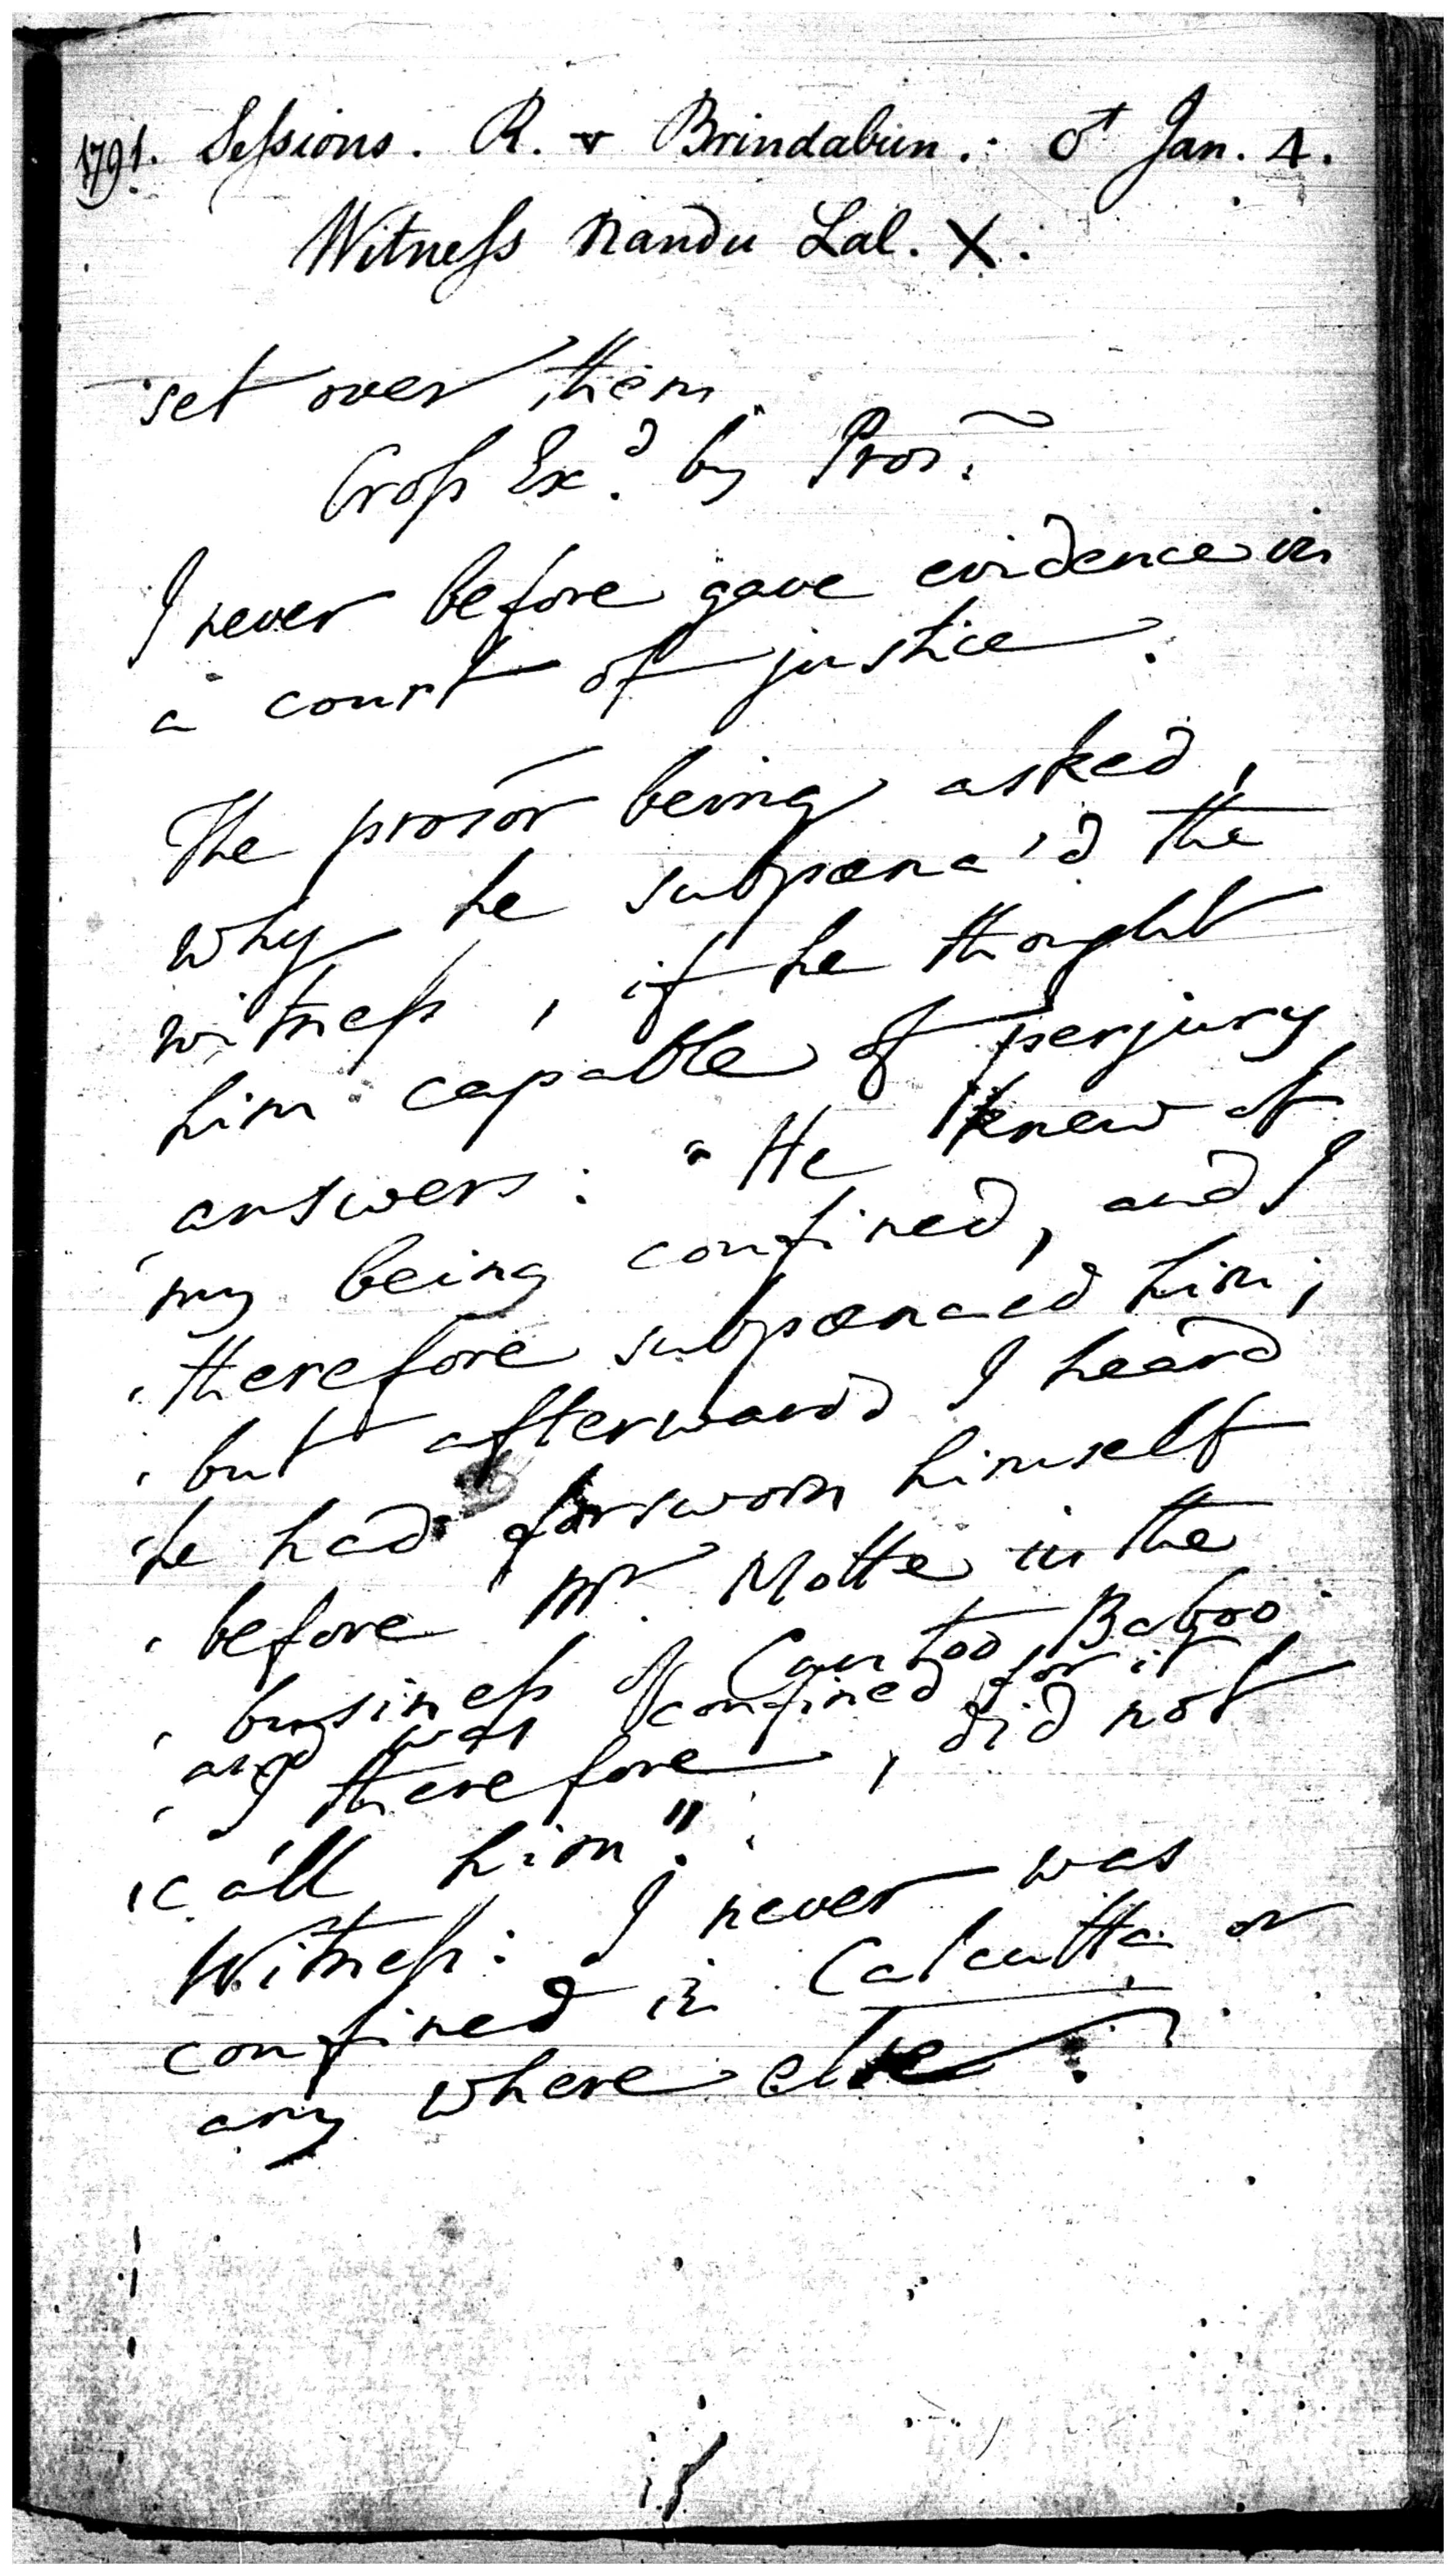 1791. Sessions. R. v Brindabun. ♂ Jan. 4.
Witness Nandu Lal. X.
set over them.
Cross Exd. by Prosr.
I never before gave evidence in
a court of justice.
The prosor being asked,
why he subpœna'd the
witness, if he thought
him capable of perjury
answers: "He knew of
my being confined, and I
therefore subpœnaed him;
but afterwards I heard
he had forsworn himself
before Mr. Motte in the
business of Cantoo Baboo
and was confined for it
I therefore, did not
call him".
Witness: I never was
confined in Calcutta or
any where else.